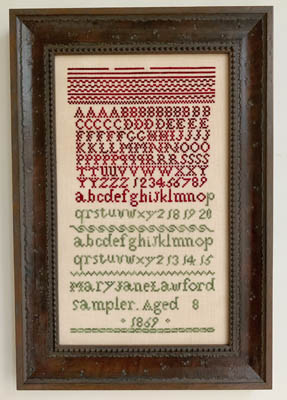 AAAABBBBBBBB
CCCCCDDDEEEE
FFFFFGGHHIJJJ
KKLLMMNNJOOO
PPPPQQQRRRSSSS
TTUUVVWWXXYY
YYZZZ 123456789
abcdefghijklmnop
qrstuvwxyz 18 19 20
abcdefghijklmnop
qrstuvwxyz 13 14 15
Mary Jane Lawford
sampler. Aged 8
1869